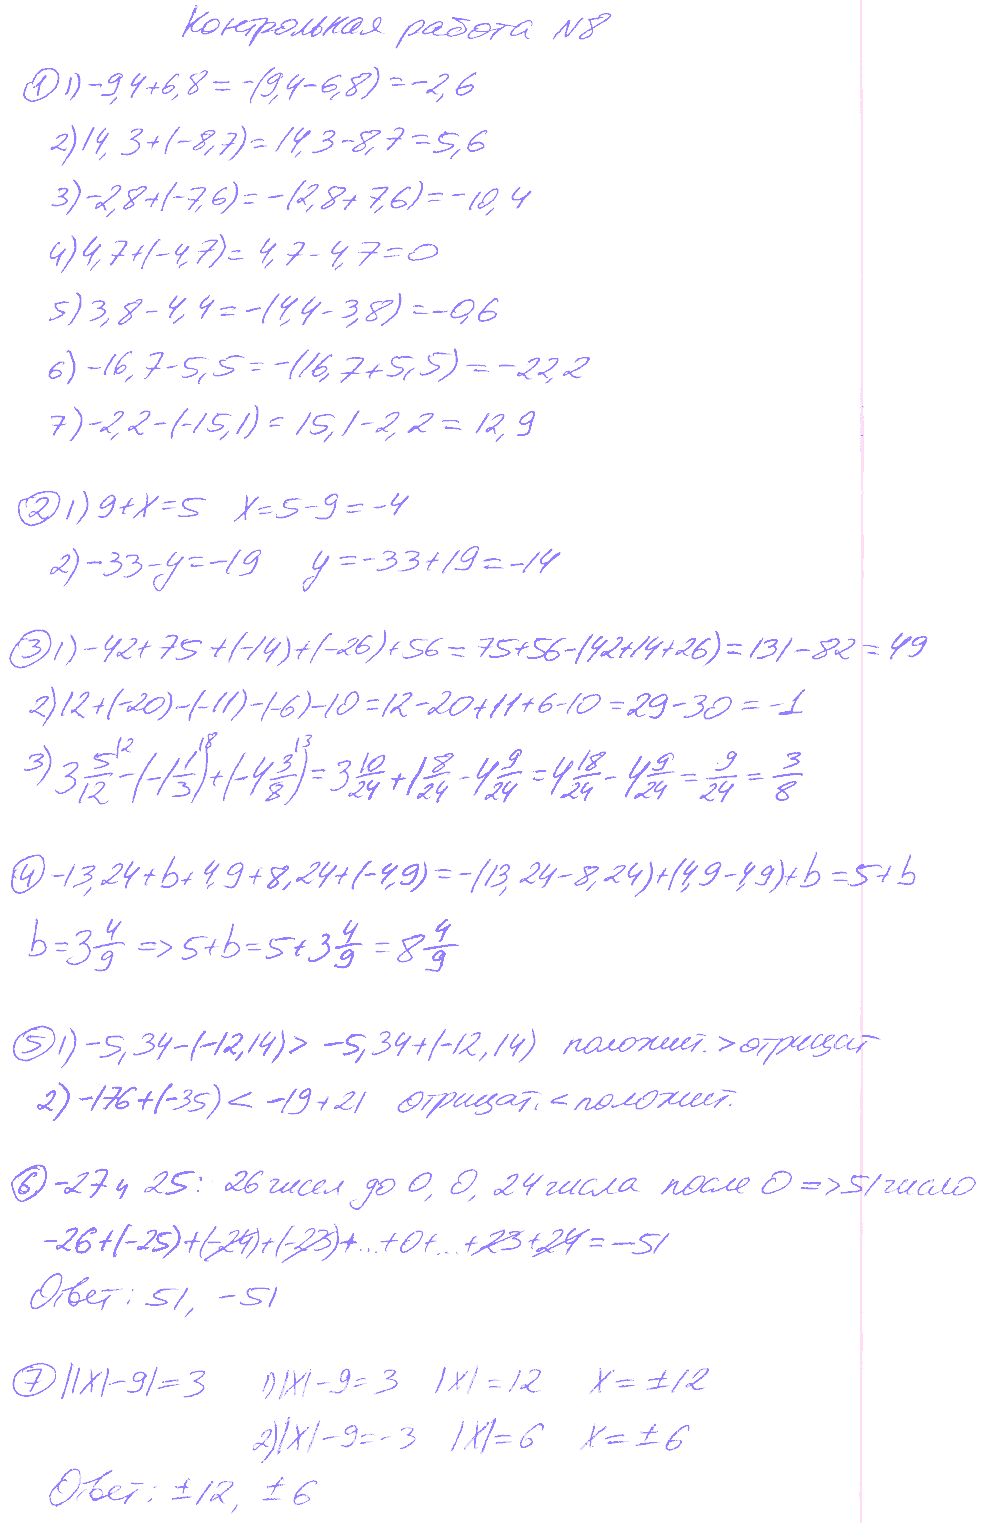 Контрольная работа №8
① 1) -9,4+6,8 = -(9,4-6,8) = -2,6
2) 14,3+(-8,7) = 14,3-8,7 = 5,6
3) -2,8+(-7,6) = -(2,8+7,6) = -10,4
4) 4,7+(-4,7) = 4,7-4,7 = 0
5) 3,8-4,4 = -(4,4-3,8) = -0,6
6) -16,7-5,5 = -(16,7+5,5) = -22,2
7) -2,2-(-15,1) = 15,1-2,2 = 12,9
② 1) 9+x=5 x=5-9=-4
2) -33-y=-19 y=-33+19=-14
③ 1) -42+75+(-14)+(-26)+56 = 75+56-(42+14+26) = 131-82 = 49
2) 12+(-20)-(-11)-(-6)-10 = 12-20+11+6-10 = 29-30 = -1
3) 3 5/12 ^12 - (-1 1/3 ^18) + (-4 3/8 ^13) = 3 10/24 + 1 8/24 - 4 9/24 = 4 18/24 - 4 9/24 = 9/24 = 3/8
④ -13,24+b+4,9+8,24+(-4,9) = -(13,24-8,24)+(4,9-4,9)+b = 5+b
b = 3 4/9 => 5+b = 5+3 4/9 = 8 4/9
⑤ 1) -5,34-(-12,14) > -5,34+(-12,14) положит. > отрицат
2) -176+(-35) < -19+21 отрицат. < положит.
⑥ -27 и 25: 26 чисел до 0, 0, 24 числа после 0 => 51 число
-26+(-25)+(-24)+(-23)+...+0+...+23+24 = -51
Ответ: 51, -51
⑦ ||x|-9|=3 1) |x|-9=3 |x|=12 x=±12
2) |x|-9=-3 |x|=6 x=±6
Ответ: ±12, ±6